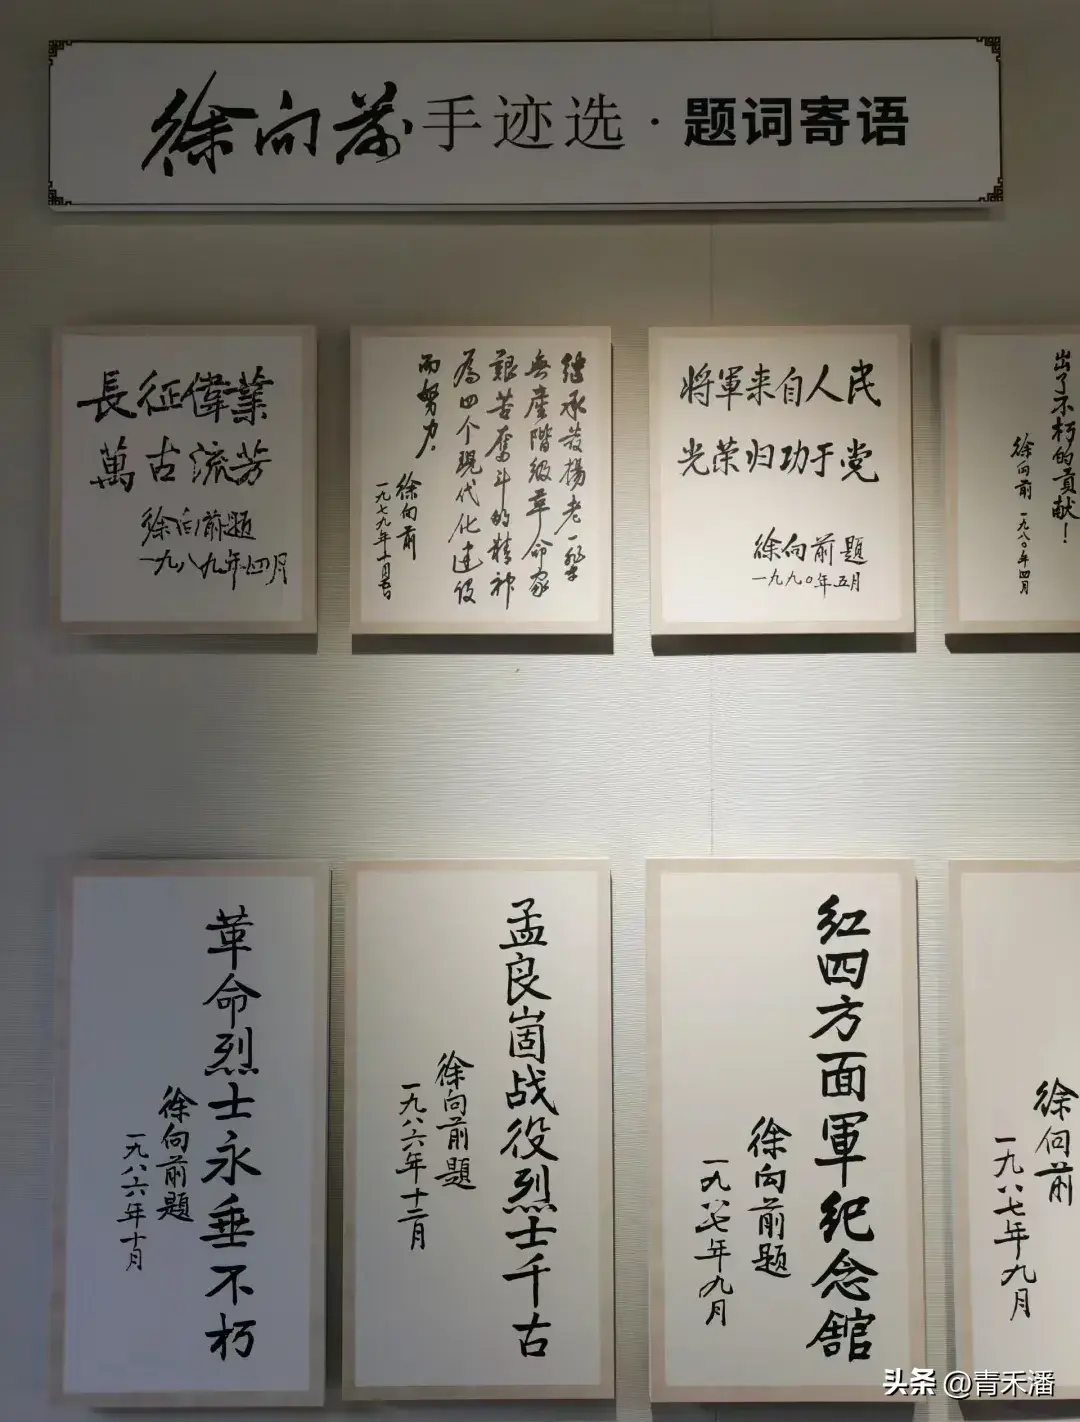 徐向前手迹选·题词寄语
長征偉業
萬古流芳
徐向前题
一九八九年四月
继承发揚老一辈
無產階級革命家
艱苦奮斗的精神
為四个现代化建设
而努力.
徐向前
将軍来自人民
光荣归功于党
徐向前題
一九九〇年五月
出了不朽的貢献!
徐向前
一九八〇年四月
革命烈士永垂不朽
徐向前題
一九八六年十月
孟良崮战役烈士千古
徐向前題
一九八六年十二月
红四方面軍纪念舘
徐向前题
一九八七年九月
徐向前
一九八七年九月
头条 @青禾潘